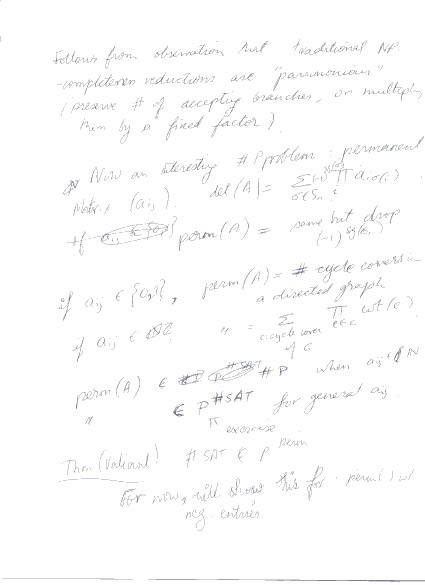 Follows from observation that traditional NP
-completeness reductions are "parsimonious"
(preserve # of accepting branches, or multiply
them by a fixed factor).
Now an interesting #P problem: permanent
Matrix (aij). det(A) = Σσ∈Sn (-1)^sg(σ) ∏ aiσ(i)
perm(A) = same but drop
(-1)^sg(σ)
if aij ∈ {0,1}, perm(A) = # cycle covers in
a directed graph
if aij ∈ " = Σ ∏ wt(e)
c: cycle cover e∈c
of G
perm(A) ∈ #P when aij ∈ IN
" ∈ P^#SAT for general aij
exercise
Thm (Valiant)! #SAT ∈ P^perm
For now, will show this for perm() w/
neg. entries